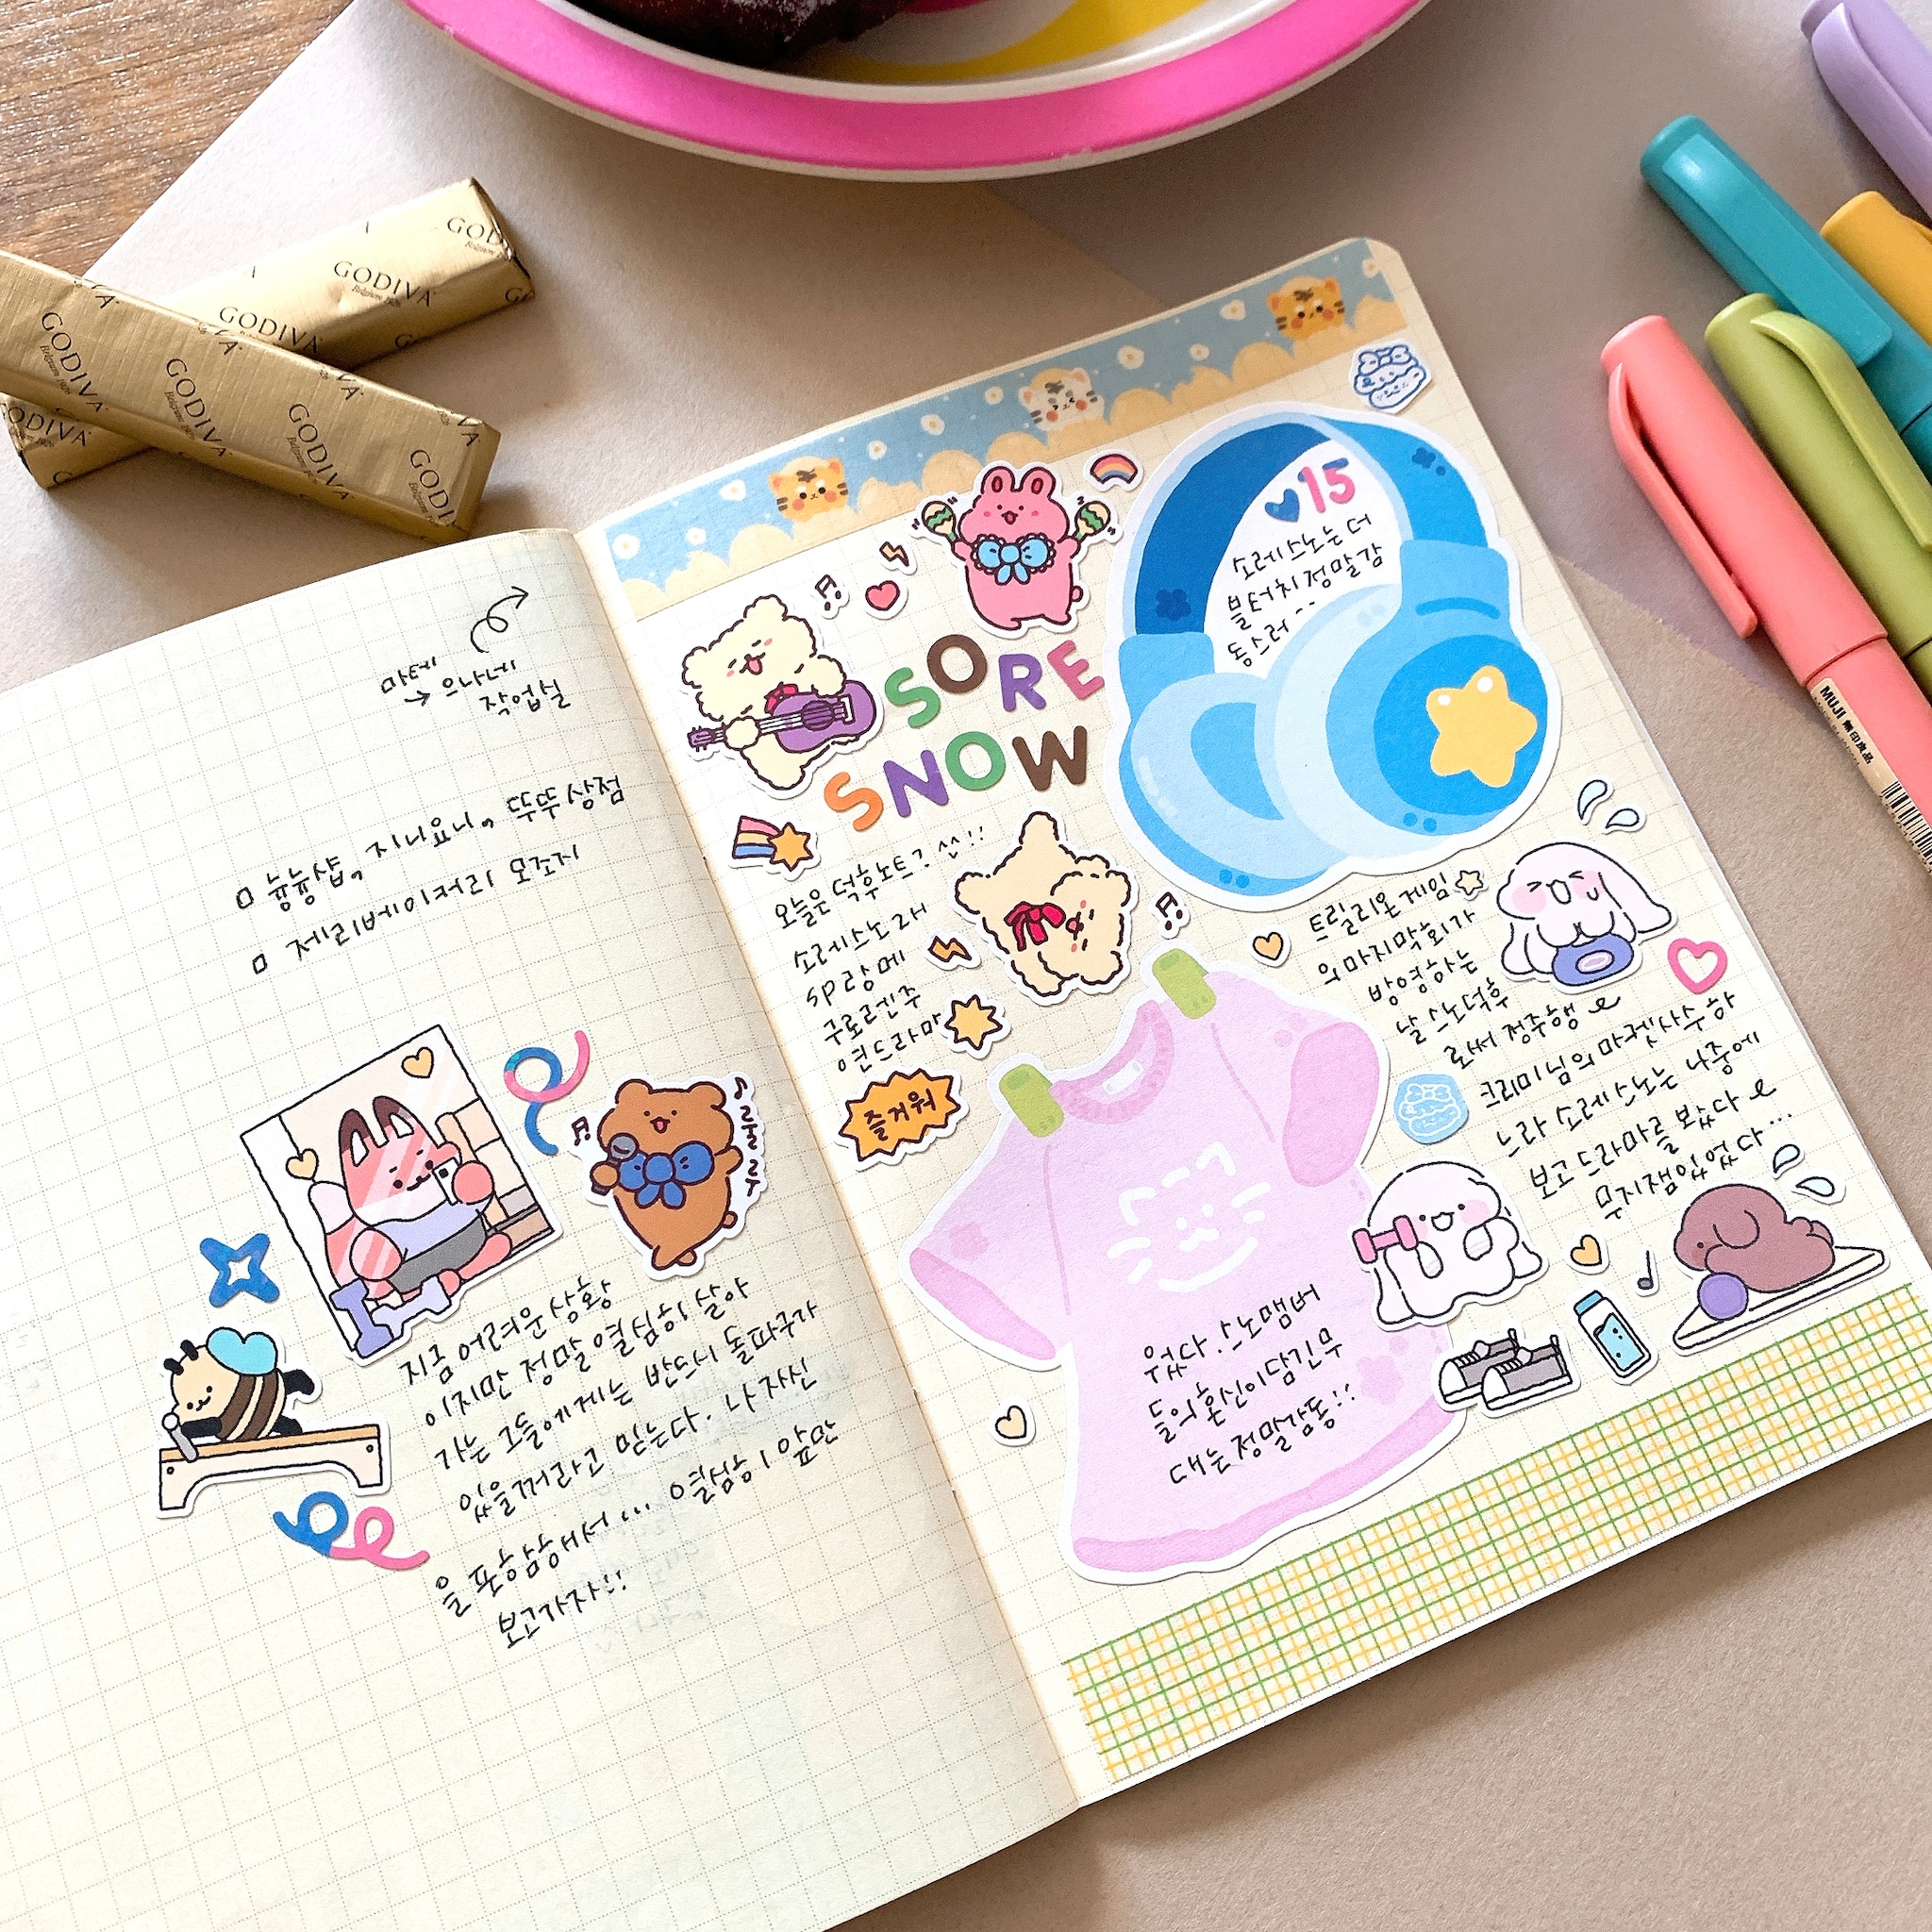 GODIVA
Belgium 1926
GODIVA
GODIVA
GODIVA
GODIVA
GODIVA
GODIVA
마테
→ 으나네
작업실
ㅁ 늉늉샵, 지니요니, 뚜뚜상점
ㅁ 제리베이커리 모조지
랄랄
루
지금 어려운 상황
이지만 정말 열심히 살아
가는 그들에게는 반드시 돌파구가
있을꺼라고 믿는다. 나 자신
을 포함해서... 열심히 앞만
보고가자!!
15
소레스노는 더
블터치 정말감
동스러..
SORE
SNOW
오늘은 덕후노트
소레스노래
sp랑 메
구로렌주
연드라마
즐거워
트릴리온게임
의 마지막회가
방영하는
날 스노덕후
로써 정주행
크리미님의 마켓사수하
느라 소레스노는 나중에
보고 드라마를 봤다
무지잼있었다...
웠다. 스노맴버
들의 혼신이담긴무
대는정말감동!!
MUJI 無印良品